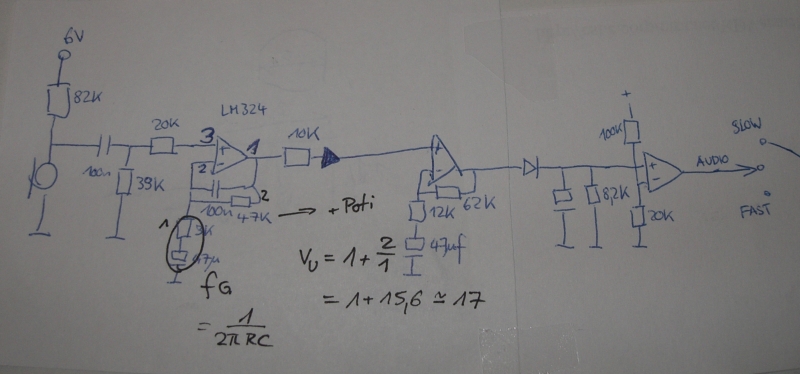 6V
82K
100n
39K
20K
LM324
3
2
1
+
-
100n
47K
2
→ + Poti
1
3K
47µ
fG
= 1/2π RC
10K
+
-
62K
12K
47µf
VU = 1 + 2/1
= 1 + 15,6 ≃ 17
8,2K
+
100K
20K
+
-
AUDIO
SLOW
FAST